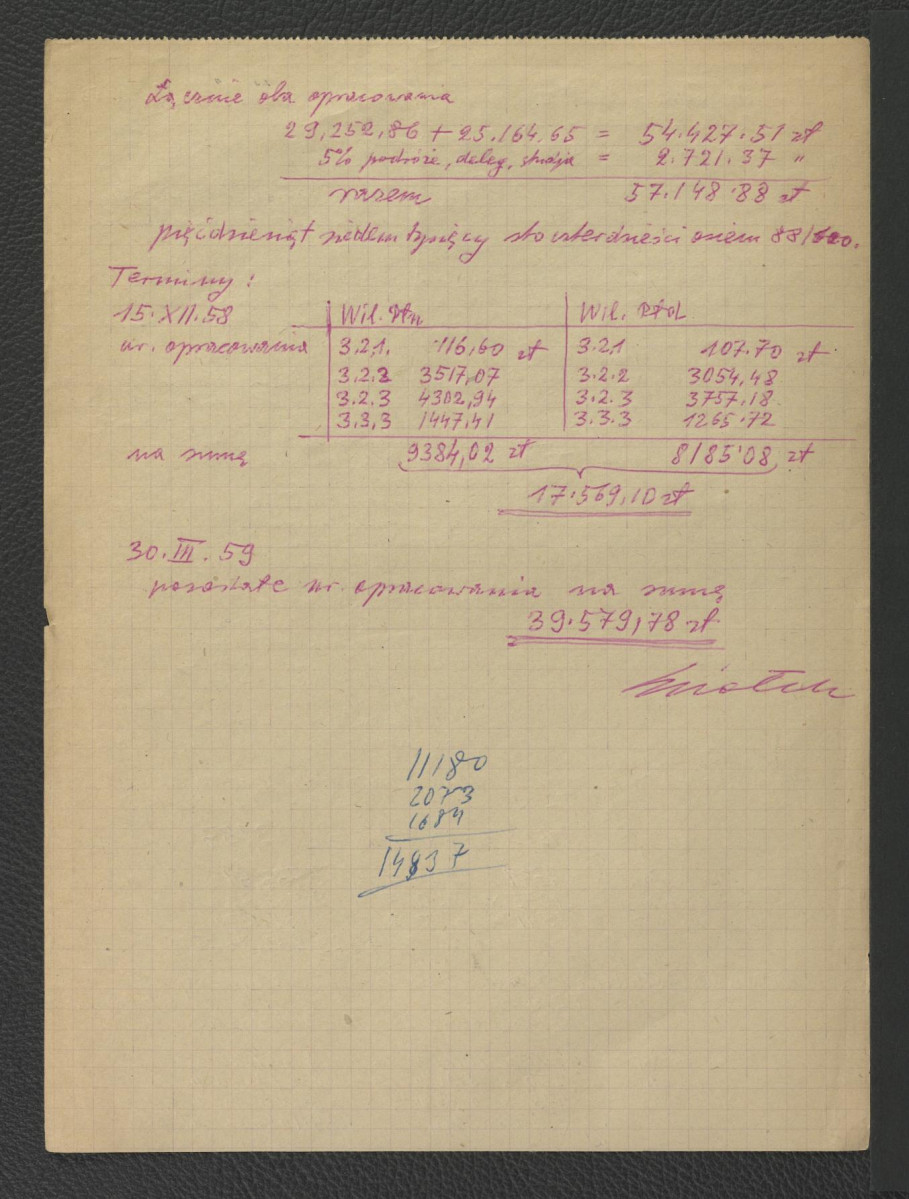 Łącznie oba opracowania
29.252,86 + 25.164.65 = 54.427.51 zł
5% podróże, deleg, studja = 2.721.37 "
razem 57.148.88 zł
pięćdziesiąt siedem tysięcy sto czterdzieści osiem 88/100.
Terminy:
15.XII.58 Wil. Płn Wil. Płd
nr. opracowania 3.2.1. 116,60 zł 3.2.1 107.70 zł
3.2.2 3517,07 3.2.2 3054,48
3.2.3 4302,94 3.2.3 3757.18
3.3.3 1447,41 3.3.3 1265.72
na sumę 9384,02 zł 8185.08 zł
17.569,10 zł
30.III.59
pozostałe nr. opracowania na sumę
39.579,78 zł
11180
2073
1684
14837